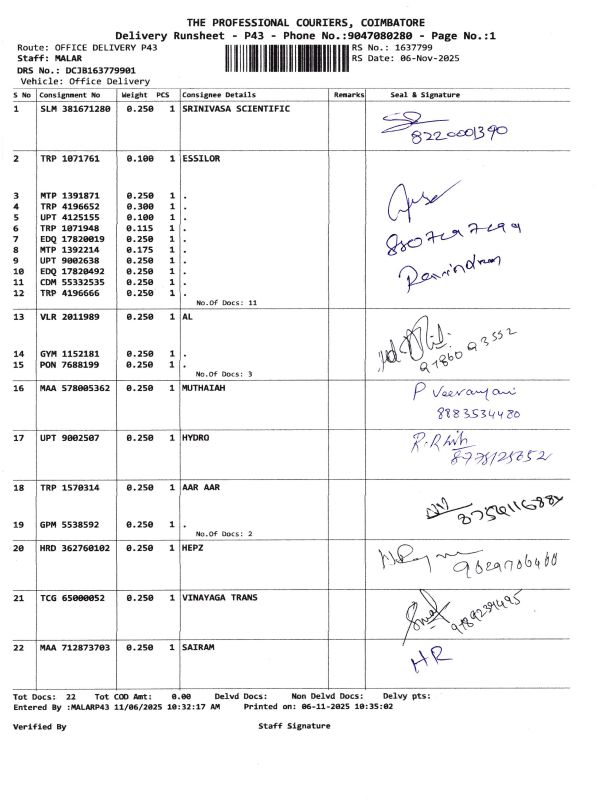 THE PROFESSIONAL COURIERS, COIMBATORE
Delivery Runsheet - P43 - Phone No.:9047080280 - Page No.:1
Route: OFFICE DELIVERY P43 RS No.: 1637799
Staff: MALAR RS Date: 06-Nov-2025
DRS No.: DCJB163779901
Vehicle: Office Delivery
S No Consignment No Weight PCS Consignee Details Remarks Seal & Signature
1 SLM 381671280 0.250 1 SRINIVASA SCIENTIFIC
8220001390
2 TRP 1071761 0.100 1 ESSILOR
3 MTP 1391871 0.250 1 .
4 TRP 4196652 0.300 1 .
5 UPT 4125155 0.100 1 .
6 TRP 1071948 0.115 1 .
7 EDQ 17820019 0.250 1 .
8 MTP 1392214 0.175 1 .
9 UPT 9002638 0.250 1 .
10 EDQ 17820492 0.250 1 .
11 CDM 55332535 0.250 1 .
12 TRP 4196666 0.250 1 .
No.Of Docs: 11
13 VLR 2011989 0.250 1 AL
14 GYM 1152181 0.250 1 .
15 PON 7688199 0.250 1 .
No.Of Docs: 3
16 MAA 578005362 0.250 1 MUTHAIAH
8883534480
17 UPT 9002507 0.250 1 HYDRO
18 TRP 1570314 0.250 1 AAR AAR
19 GPM 5538592 0.250 1 .
No.Of Docs: 2
20 HRD 362760102 0.250 1 HEPZ
21 TCG 65000052 0.250 1 VINAYAGA TRANS
22 MAA 712873703 0.250 1 SAIRAM
HR
Tot Docs: 22 Tot COD Amt: 0.00 Delvd Docs: Non Delvd Docs: Delvy pts:
Entered By :MALARP43 11/06/2025 10:32:17 AM Printed on: 06-11-2025 10:35:02
Verified By Staff Signature